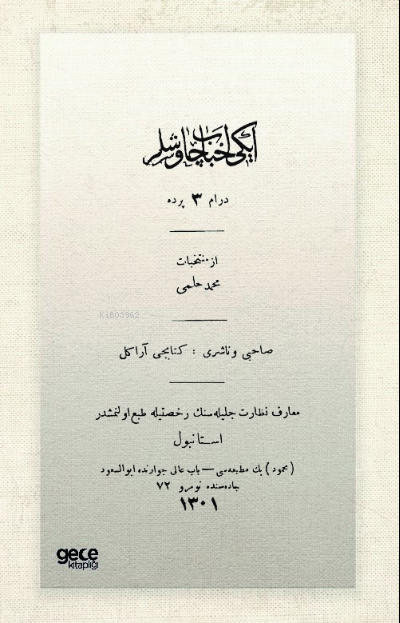 ایكی احباب چاوشلر
درام ٣ پرده
از منتخبات
محمد حلمی
KitB03962
صاحبی و ناشری : كتابجی آراكل
معارف نظارت جلیله سنك رخصتیله طبع اولنمشدر
استانبول
(محمود) بك مطبعه سی — باب عالی جوارنده ابوالسعود
جاده سنده نومرو ٧٢
١٣٠١
gece
kitaplığı